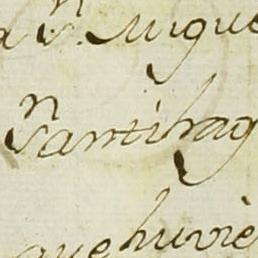 a S.n Migue
Santiag
que huvie